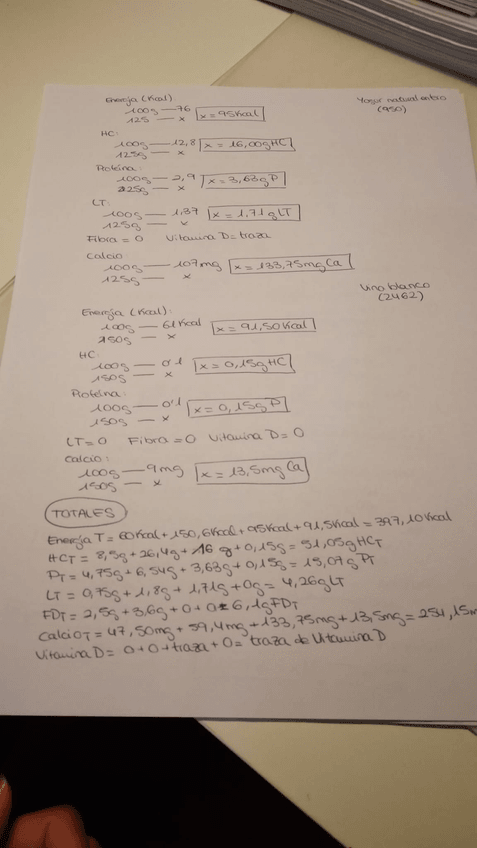 Energía (Kcal)
Yogur natural entero
(950)
100g — 76
125 — x
x = 95Kcal
HC:
100g — 12,8
125g — x
x = 16,00gHC
Proteína:
100g — 2,9
125g — x
x = 3,63gP
LT:
100g — 1,37
125g — x
x = 1,71gLT
Fibra = 0 Vitamina D = traza
Calcio
100g — 107mg
125g — x
x = 133,75mgCa
Vino blanco
(2462)
Energía (Kcal):
100g — 61Kcal
150g — x
x = 91,50Kcal
HC:
100g — 0'1
150g — x
x = 0,15gHC
Proteína:
100g — 0'1
150g — x
x = 0,15gP
LT = 0 Fibra = 0 Vitamina D = 0
Calcio:
100g — 9mg
150g — x
x = 13,5mgCa
TOTALES
Energía T = 60Kcal + 150,6Kcal + 95Kcal + 91,5Kcal = 397,10Kcal
HCT = 8,5g + 26,4g + 16 g + 0,15g = 51,05gHCT
PT = 4,75g + 6,54g + 3,63g + 0,15g = 15,07gPT
LT = 0,75g + 1,8g + 1,71g + 0g = 4,26gLT
FDT = 2,5g + 3,6g + 0 + 0 = 6,1gFDT
CalcioT = 47,50mg + 59,4mg + 133,75mg + 13,5mg = 254,15m
Vitamina D = 0 + 0 + traza + 0 = traza de Vitamina D